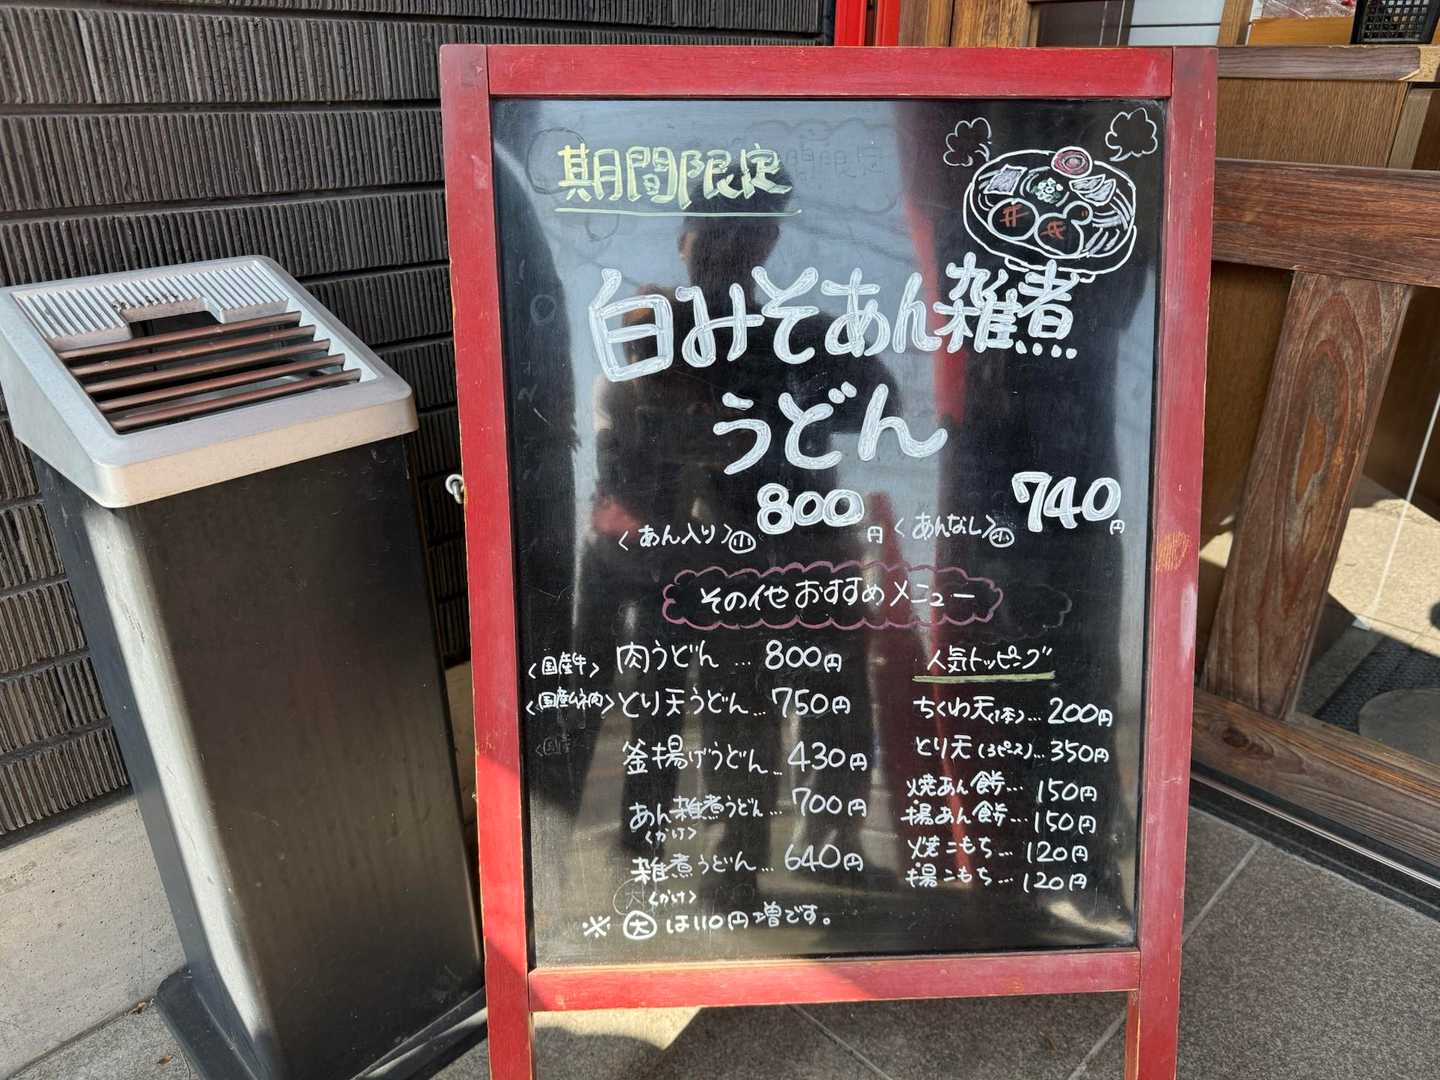 期間限定
白みそあん雑煮
うどん
〈あん入り〉小 800円 〈あんなし〉小 740円
その他おすすめメニュー
〈国産牛〉肉うどん…800円
〈国産ムネ肉〉とり天うどん…750円
釜揚げうどん…430円
あん雑煮うどん…700円
〈かけ〉
雑煮うどん…640円
〈かけ〉
※大は110円増です。
人気トッピング
ちくわ天(1本)…200円
とり天(3ピース)…350円
焼あん餅…150円
揚あん餅…150円
焼こもち…120円
揚こもち…120円